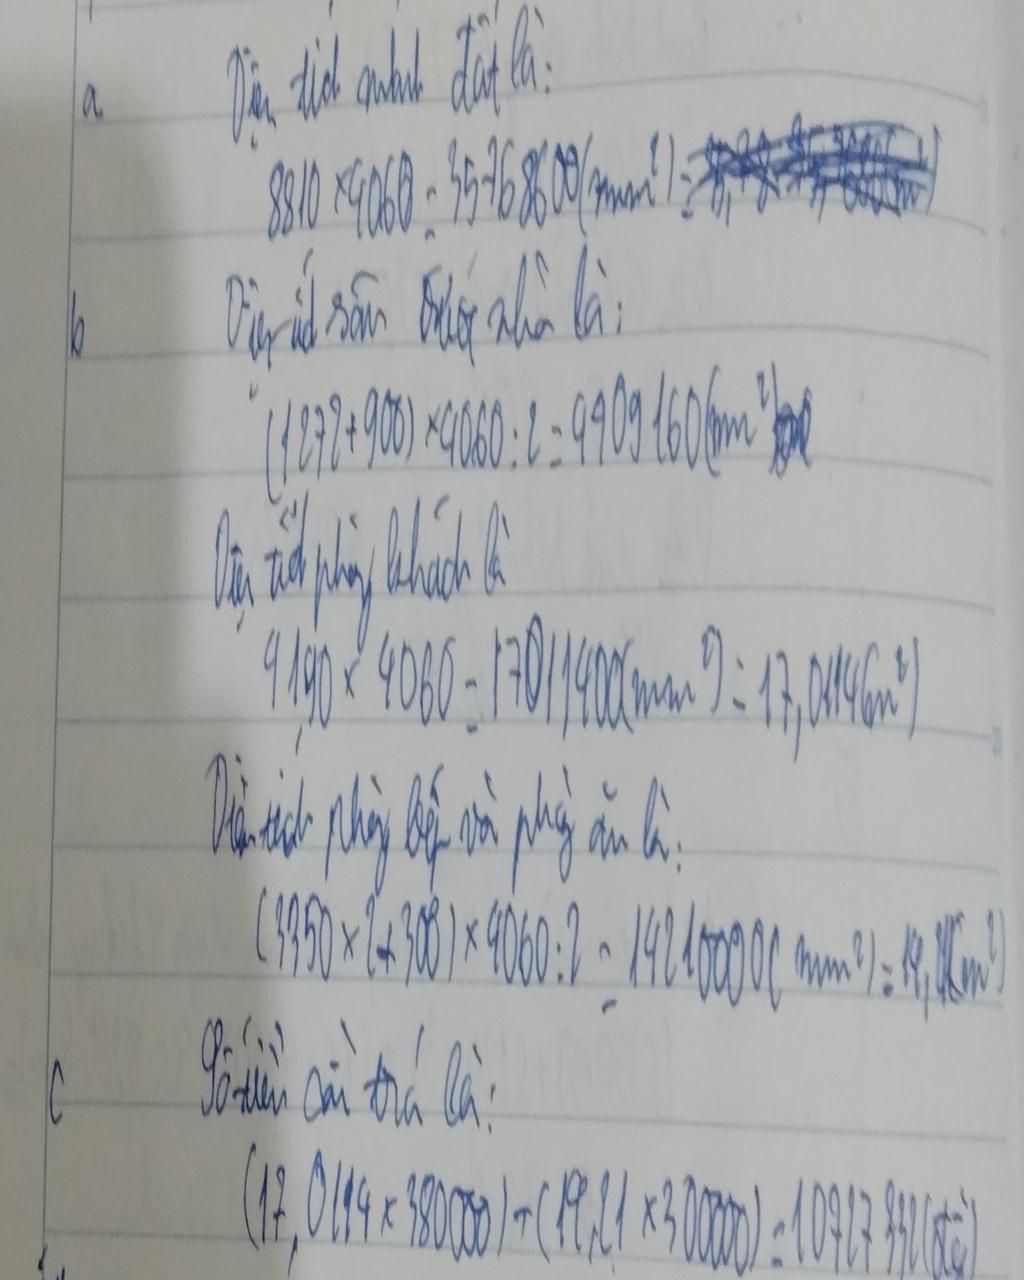 a Diện tích mảnh đất là:
8810 × 4060 = 35768600 (mm²) =
b Diện tích sân trước nhà là:
(1272 + 900) × 4060 : 2 = 4409160 (mm²)
Diện tích phòng khách là
4190 × 4060 = 17011400 (mm²) = 17,0114 (m²)
Diện tích phòng bếp và phòng ăn là:
(3350 × 2 + 300) × 4060 : 2 = 14210000 (mm²) = 14,21 (m²)
c Số tiền cần trả là:
(17,0114 × 380000) + (14,21 × 300000) = 10727332 (đồng)